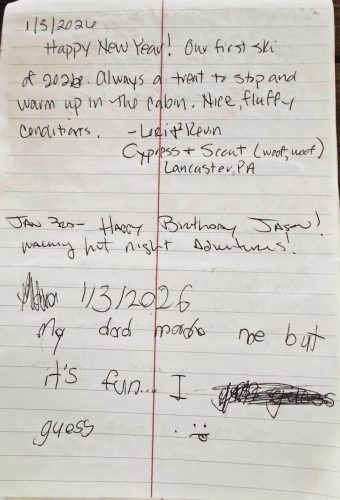 1/3/2026
Happy New Year! Our first ski
of 2026. Always a treat to stop and
warm up in the cabin. Nice, fluffy
conditions. - Lori & Kevin
Cypress + Scout (woof, woof)
Lancaster, PA
JAN 3RD- HAPPY Birthday JASON!
hot night Adventures!
1/3/2026
My dad made me but
it's fun... I
guess